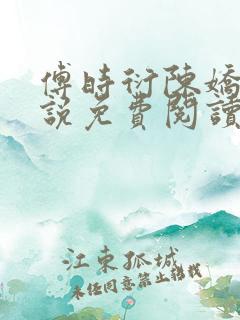 傅時衍陳嬌
說免費閱讀
江東孤城
未经同意禁止转载